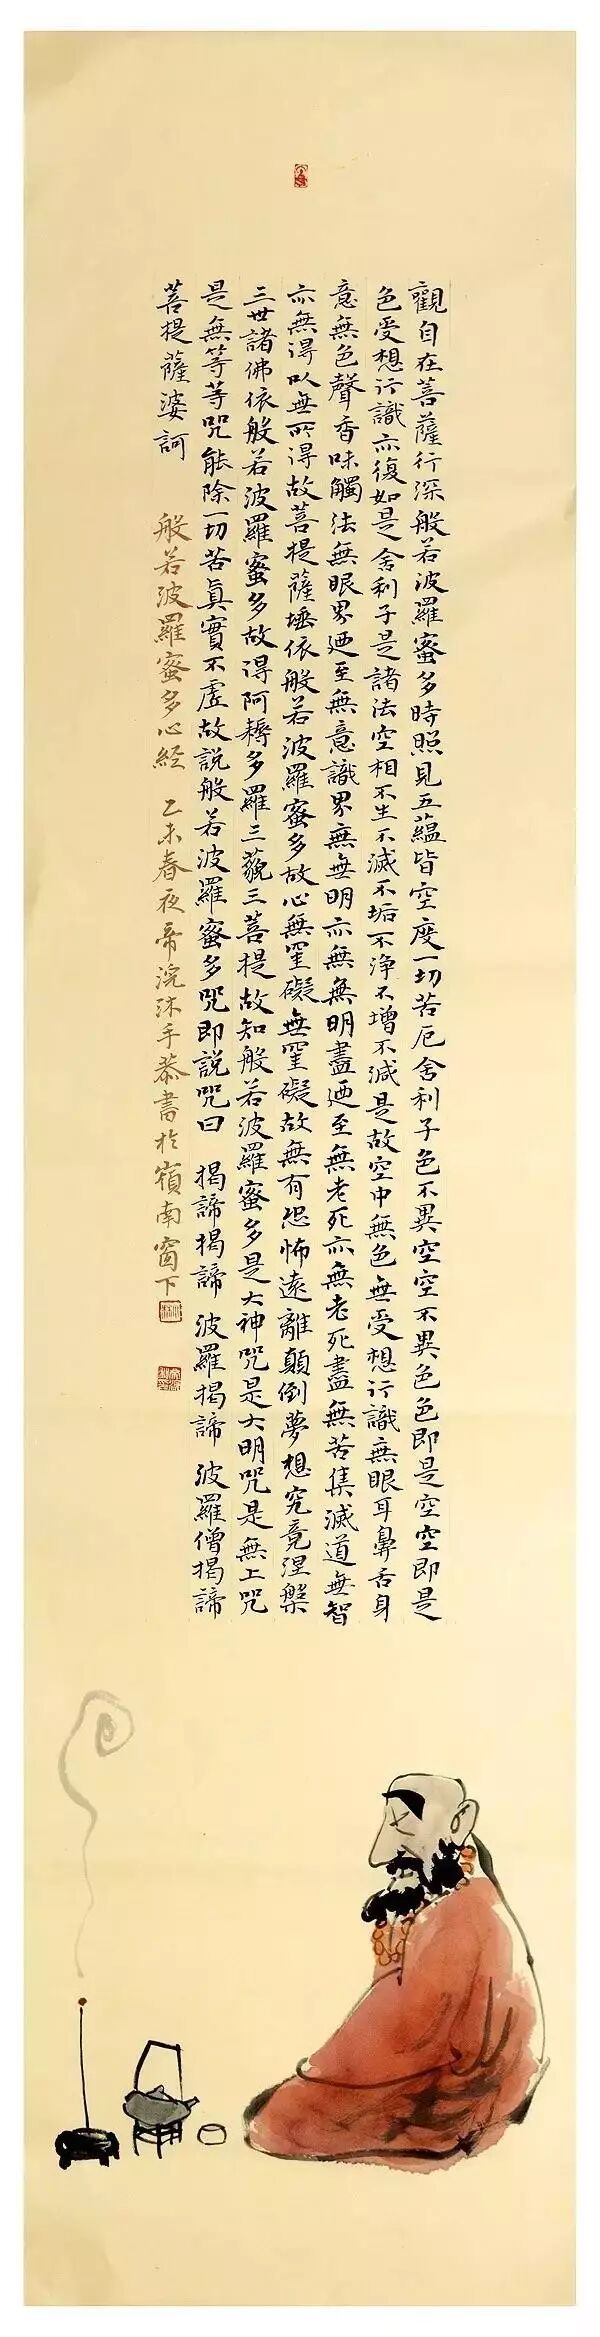 觀自在菩薩行深般若波羅蜜多時照見五蘊皆空度一切苦厄舍利子色不異空空不異色色即是空空即是
色受想行識亦復如是舍利子是諸法空相不生不滅不垢不淨不增不減是故空中無色無受想行識無眼耳鼻舌身
意無色聲香味觸法無眼界迺至無意識界無無明亦無無明盡迺至無老死亦無老死盡無苦集滅道無智
亦無得以無所得故菩提薩埵依般若波羅蜜多故心無罣礙無罣礙故無有恐怖遠離顛倒夢想究竟涅槃
三世諸佛依般若波羅蜜多故得阿耨多羅三藐三菩提故知般若波羅蜜多是大神咒是大明咒是無上咒
是無等等咒能除一切苦真實不虛故說般若波羅蜜多咒即說咒曰 揭諦揭諦 波羅揭諦 波羅僧揭諦
菩提薩婆訶 般若波羅蜜多心經 乙未春夜帝浣沐手恭書於嶺南窗下